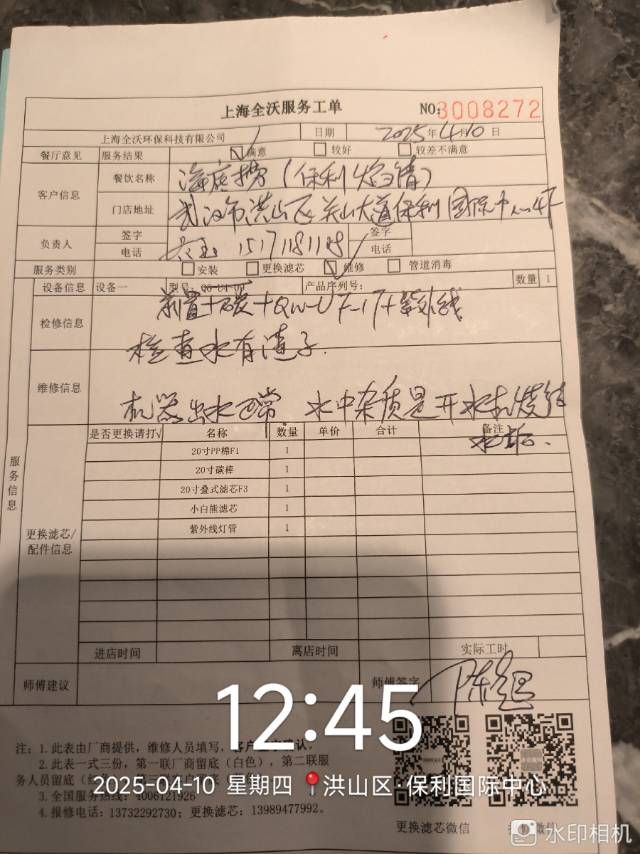 上海全沃服务工单 NO:3008272
上海全沃环保科技有限公司 日期 2025年4月10日
餐厅意见 服务结果 满意 较好 较差不满意
客户信息 餐饮名称 海底捞(保利
门店地址 武汉市洪山区关山大道保利国际中心4F
负责人 签字 签字
电话 电话
服务类别 安装 更换滤芯 维修 管道消毒
设备信息 设备一 型号: 产品序列号: 数量 1
检修信息 前置+碳+QW-UF-1T+紫外线
检查水有渣子.
维修信息 机器出水正常.水中杂质是开水机
水垢.
是否更换请打√ 名称 数量 单价 合计 备注
服务信息
更换滤芯/配件信息
20寸PP棉F1 1
20寸碳棒 1
20寸叠式滤芯F3 1
小白熊滤芯 1
紫外线灯管 1
进店时间 离店时间 实际工时
师傅建议 师傅签字
12:45
2025-04-10 星期四 洪山区·保利国际中心
注:1.此表由厂商提供,维修人员填写,
2.此表一式三份,第一联厂商留底(白色),第二联服
务人员留底
3.全国服务热线:4006121926
4.报修电话:13732292730;更换滤芯:13989477992.
更换滤芯微信
水印相机